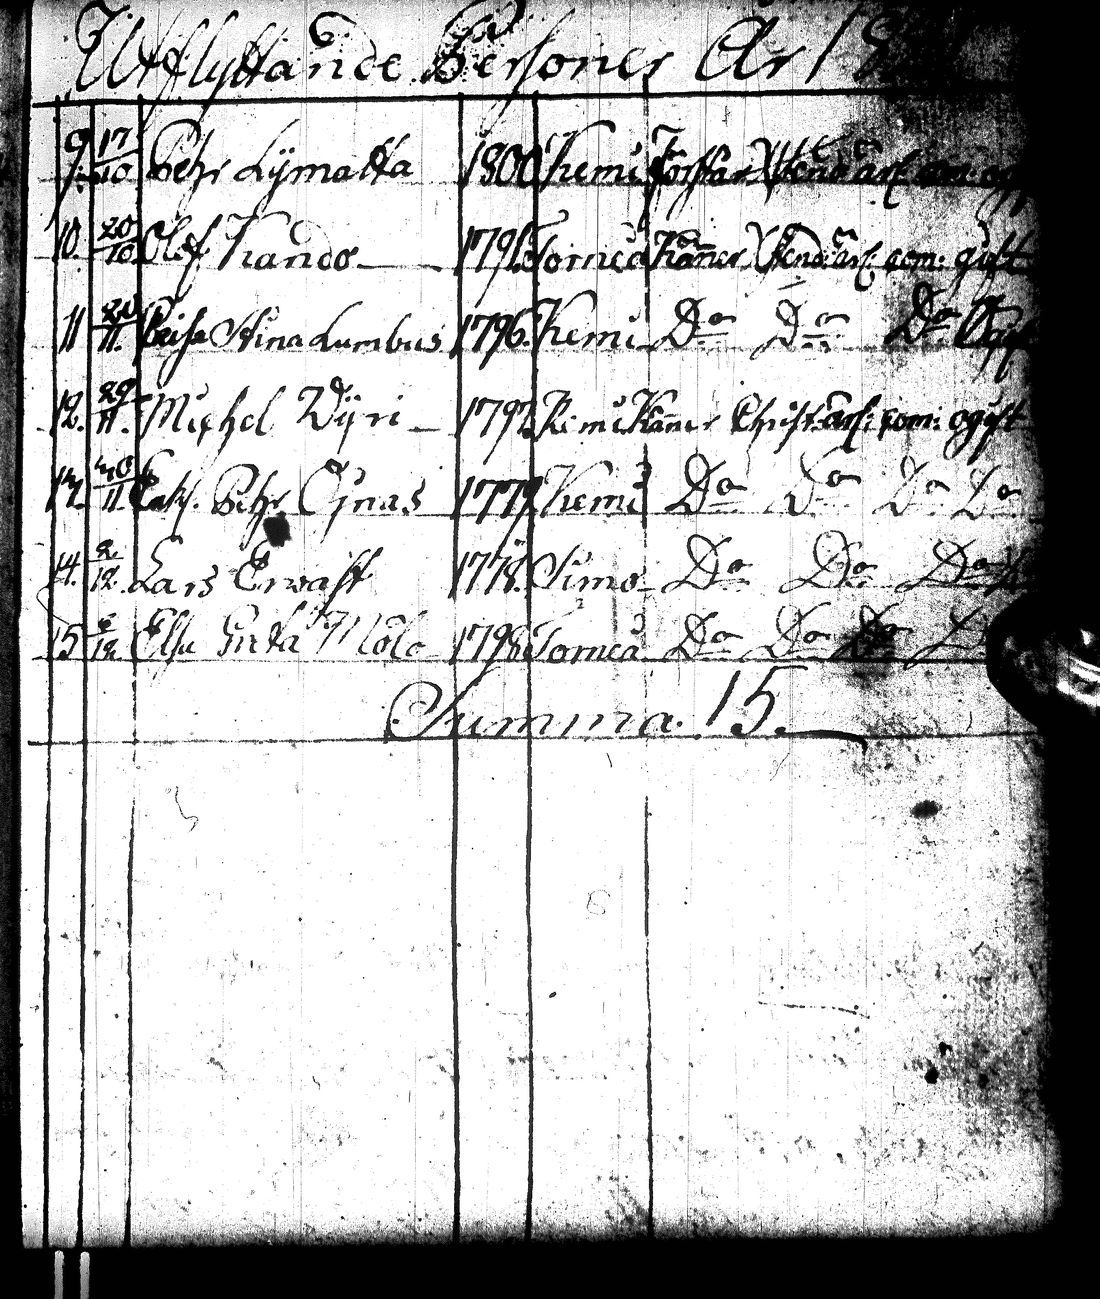 Utflyttande Personer År 18
9. 17/10 Pehr Lÿmatta 1800 Kemi Förstår
10. 20/10 Olof Kando 1796. Torneå Känner com: gift
11 20/11. Stina Lumbus 1796. Kemi Do Do Do
12. 29/11. Michel Wÿri 1797. Kemi Känner Christ: com: ogift
13. 30/11 Pehr 1777. Kemi Do Do Do Do
14. 2/12. Lars Erwast 1778. Simo Do Do Do
15 12. Elsa Greta 1798. Torneå Do Do Do
Summa. 15.